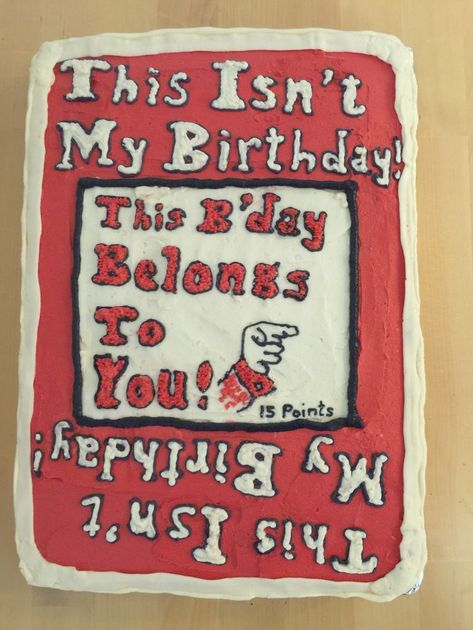 This Isn't
My Birthday!
This B'day
Belongs
To
You!
15 Points
This Isn't
My Birthday!